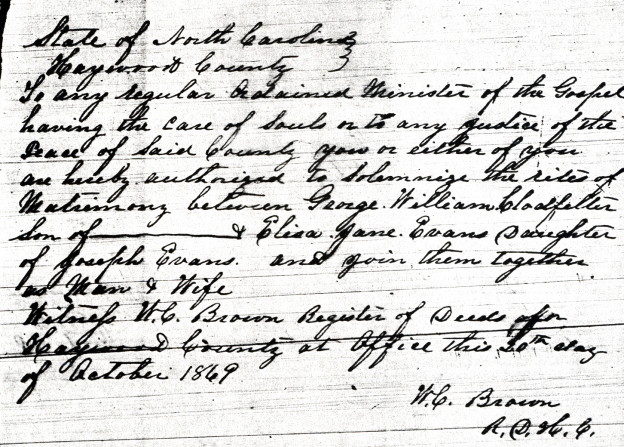 State of North Carolina
Haywood County
To any regular Ordained Minister of the Gospel
having the care of Souls or to any justice of the
Peace of Said County you or either of you
are hereby authorized to Solemnize the rites of
Matrimony between George William Clodfelter
Son of & Eliza Jane Evans Daughter
of Joseph Evans. and join them together
as Man & Wife
Witness W.C. Brown Register of Deeds for
Haywood County at Office this 20th day
of October 1869
W.C. Brown
R.D.H.C.